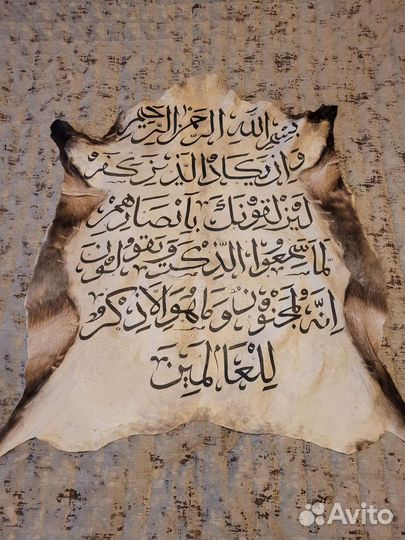 بسم الله الرحمن الرحيم
وإن يكاد الذين كفر
ليزلقونك بأبصارهم
لما سمعوا الذكر ويقولون
إنه لمجنون وما هو إلا ذكر
للعالمين
Avito